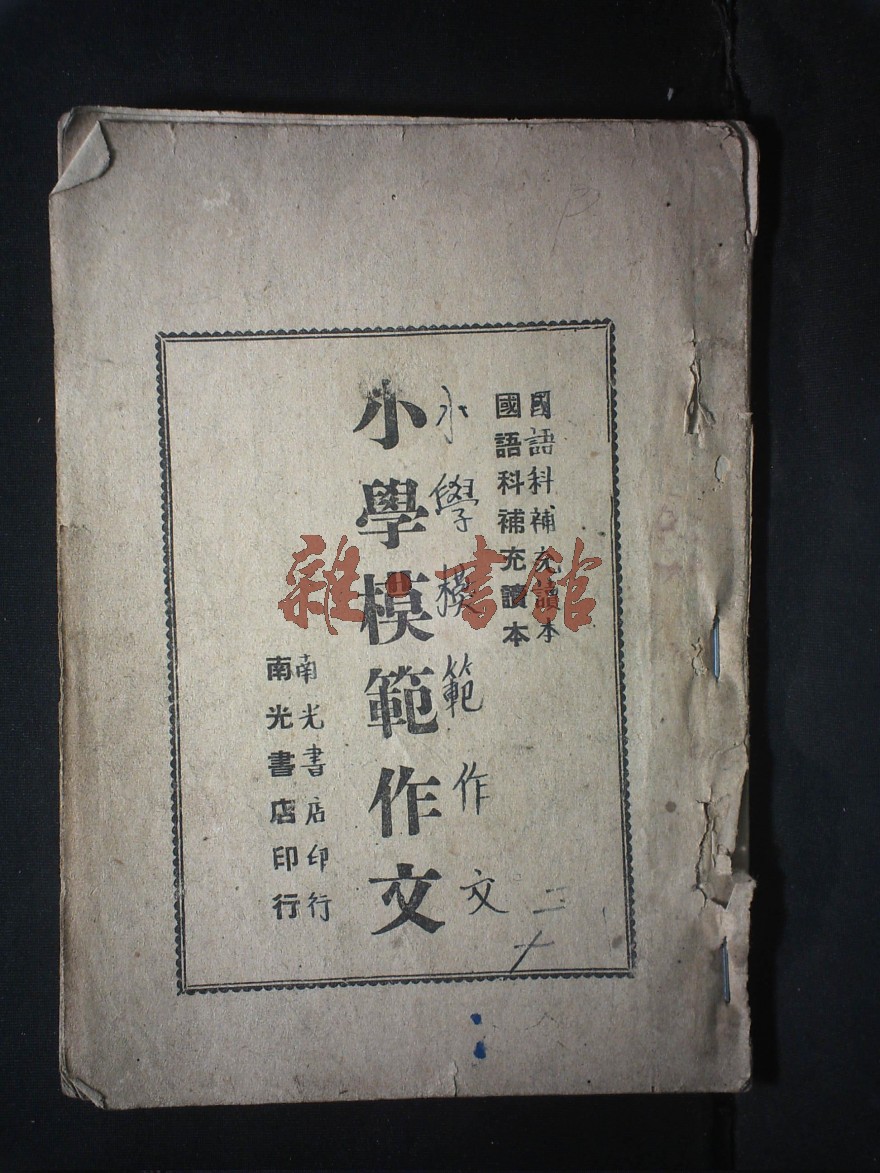 國語科補充讀本
國語科補充讀本
小學模範作文
小學模範作文
二十
南光書店印行
南光書店印行
雜書館